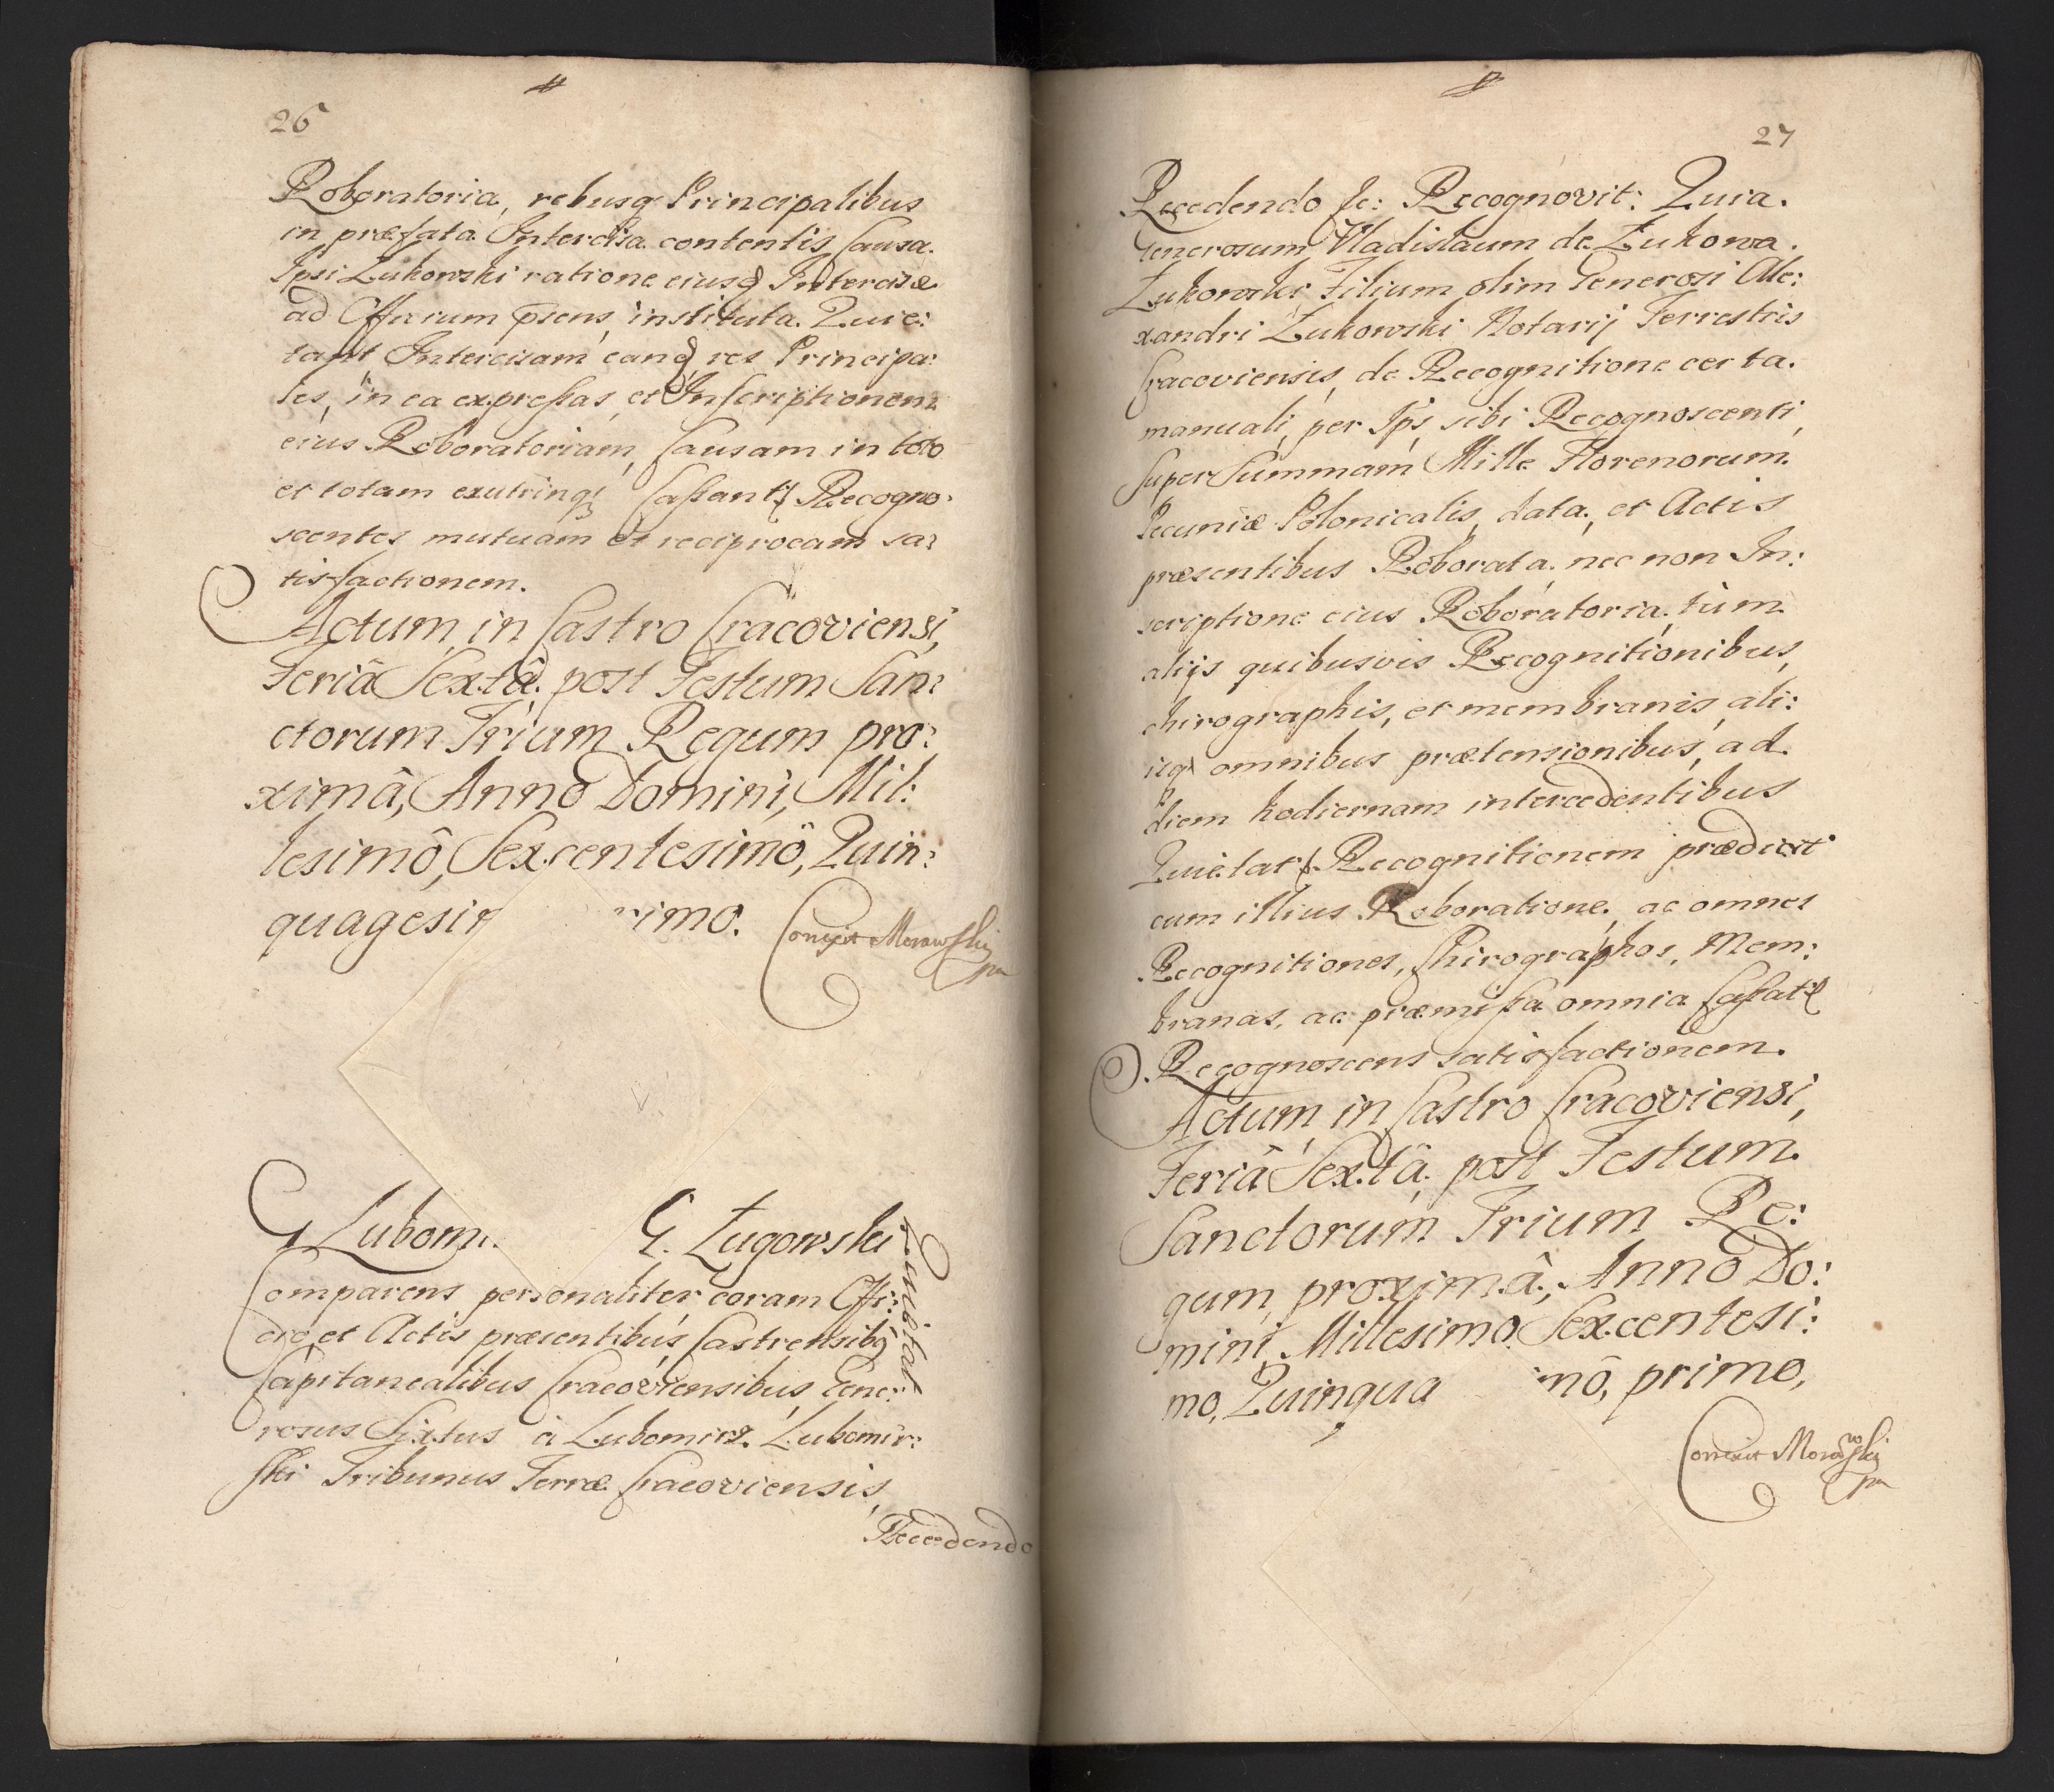 26
Roboratoria, rebusq Principalibus
in præfata Intercisa contentis Causa
Ipsi Zukowski ratione eiusd Intercisæ
ad Officium præns instituta. Quie:
tant Intercisam eand, res Principa:
les, in ea expressas, et Inscriptionem
eius Roboratoriam, Causam in toto
et totam exutrinq Cassant, Recogno:
scentes mutuam et reciprocam sa:
tisfactionem.
Actum in Castro Cracoviensi,
Feriâ Sextâ post Festum San:
ctorum Trium Regum pro:
ximâ, Anno Domini, Mil:
lesimô, Sexcentesimô, Quin:
quagesi imo.
Correxit Morawski
pa
G Lubom. G. Ługowski
quietat
Comparens personaliter coram Offi:
cio et Actis præsentibus Castrensibq
Capitanealibus Cracoviensibus, Gene:
rosus Sixtus à Lubomirz Lubomir:
ski Tribunus Terræ Cracoviensis,
Recedendo
27
Recedendo &c: Recognovit: Quia
Generosum Vladislaum de Zukowa
Zukowski Filium olim Generosi Ale:
xandri Zukowski Notarij Terrestris
Cracoviensis, de Recognitione certa
manuali, per Ips, sibi Recognoscenti,
super Summam Mille Florenorum
Pecuniæ Polonicalis, data, et Actis
præsentibus Roborata, nec non In:
scriptione eius Roboratoria, tùm
alijs quibusvis Recognitionibus,
chirographis, et membranis, ali:
isq omnibus prætensionibus, ad
diem hodiernam intercedentibus
Quietat, Recognitionem prædict
cum illius Roboratione, ac omnes
Recognitiones, Chirographos, Mem:
branas, ac præmissa omnia Cassat,
Recognoscens satisfactionem.
Actum in Castro Cracoviensi,
Feriâ Sextâ, post Festum
Sanctorum Trium Re:
gum, proximâ, Anno Do:
mini Millesimo Sexcentesi:
mo, Quinqua mô, primo,
Correxit Morawski
pa